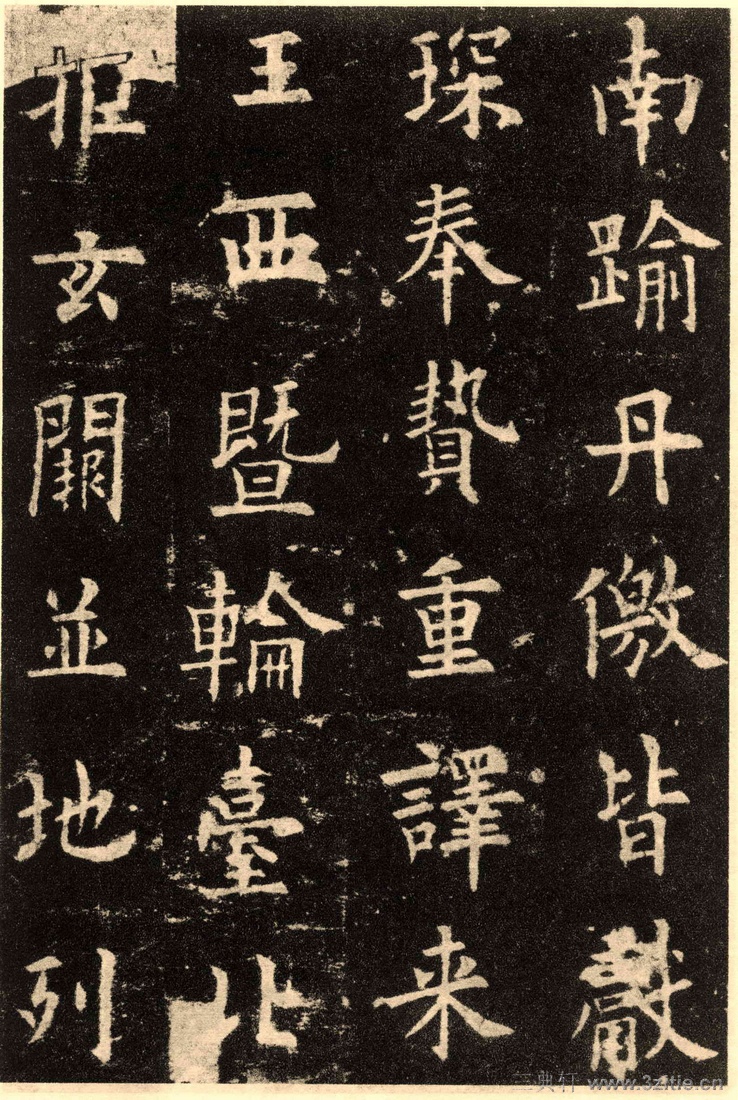 南踰丹儌皆獻
琛奉贄重譯来
王西暨輪臺北
拒玄闕並地列
三典轩 www.3zitie.cn